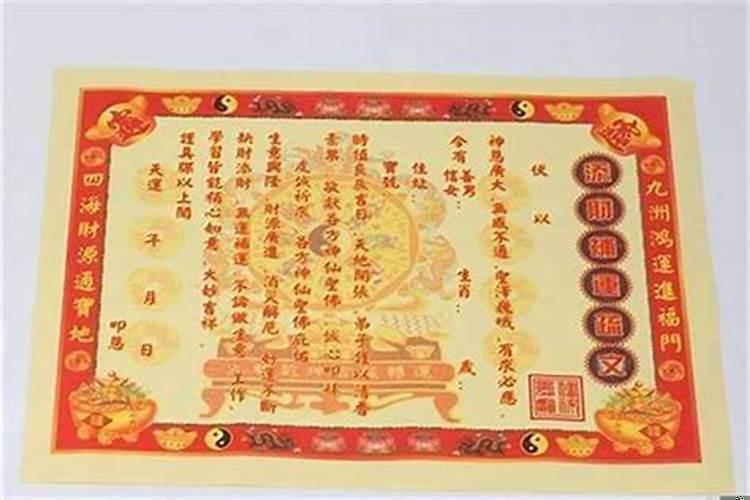 九洲鴻運進福門
添財補運疏文
伏以
神恩廣大 無感不通 聖澤巍峨 有求必應
今有善男信女：　生肖：　歲：
住址：
寶號
時值良辰吉日 天地開張 弟子謹以清香
素果 敬獻各方神仙聖佛 誠心叩拜
虔誠祈求 各方神仙聖佛庇佑
生意興隆 財源廣進 消災解厄 好運不斷
缺財添財 無運補運 不論做生意 工作、
學習皆能稱心如意 大妙吉祥
謹具疏以上聞
天運　年　月　日
叩懇
四海財源通寶地